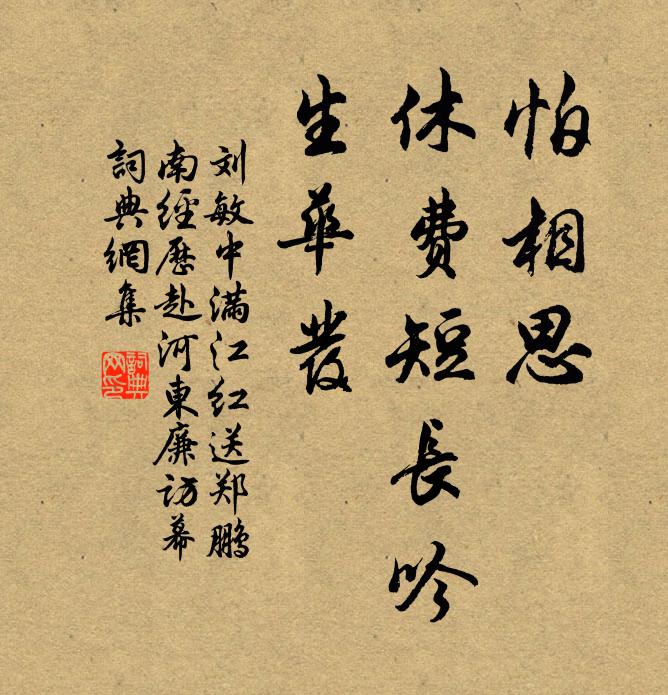 怕相思
休费短長吟
生華發
刘敏中满江红送郑鹏
南經歷赴河東廉访幕
詞典網集
詞典網印